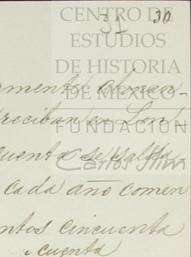 CENTRO DE
ESTUDIOS
DE HISTORIA
DE MÉXICO
FUNDACIÓN
Carlos Slim
31 30
reciban en Lon
cuenta se
cada año comen
ntos cincuenta
cuenta